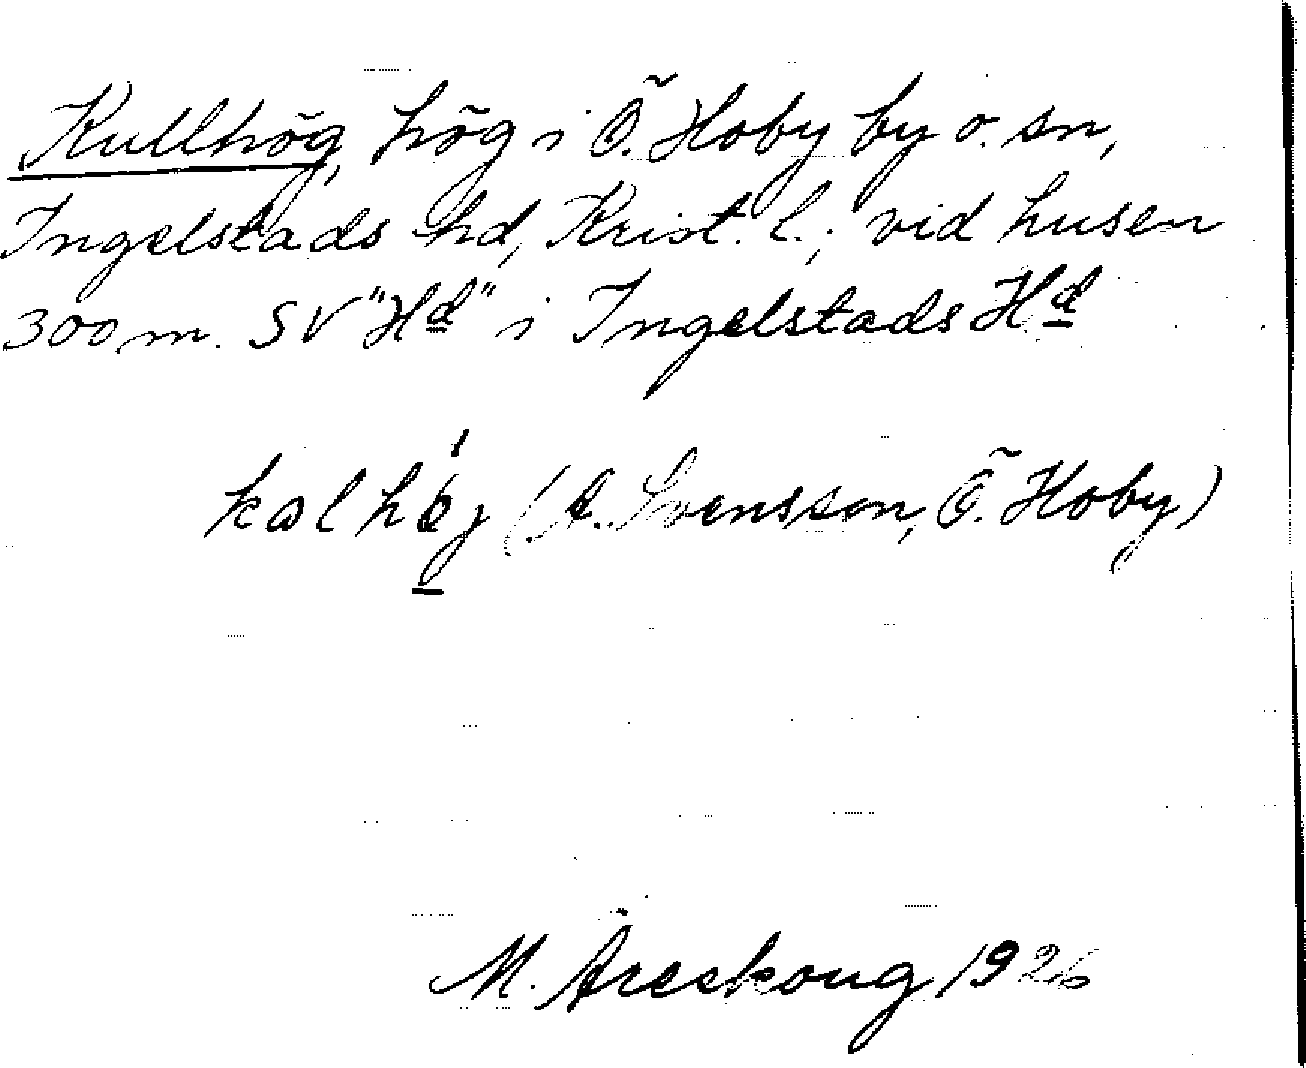 Kullhög, hög i Ö. Hoby by o. sn,
Ingelstads hd, Krist. l.; vid husen
300 m. SV "Hd" i Ingelstads Hd
(A. Svensson, Ö. Hoby)
M. Areskoug 1926